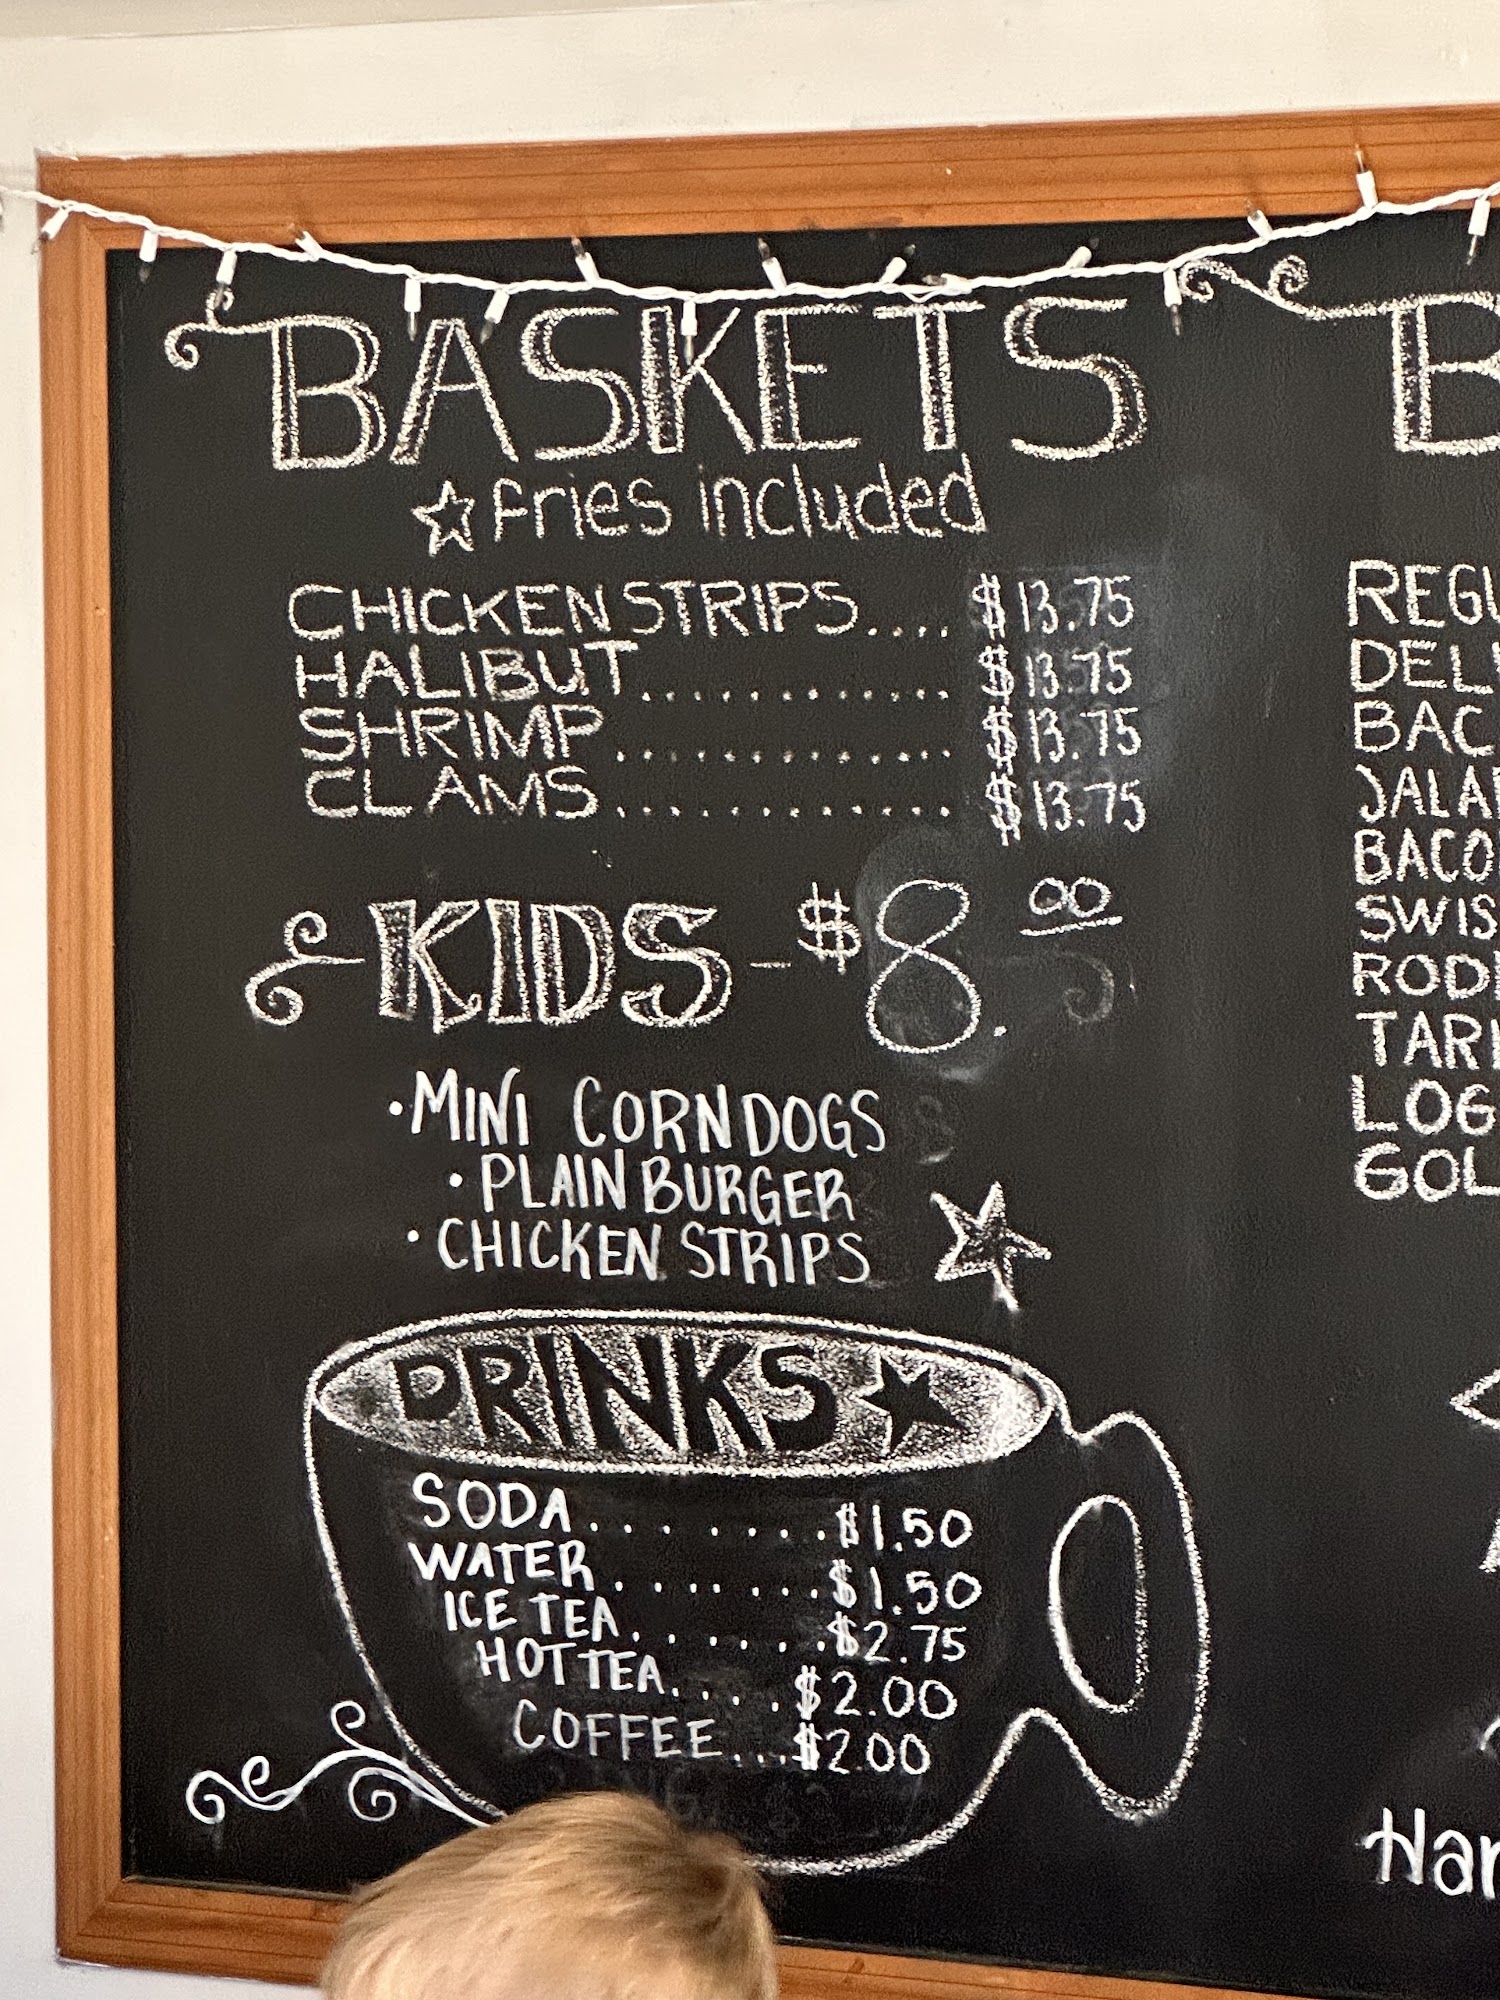 BASKETS
fries included
CHICKEN STRIPS.... $13.75
HALIBUT............ $13.75
SHRIMP............ $13.75
CLAMS............ $13.75
KIDS - $8.00
• MINI CORNDOGS
• PLAIN BURGER
• CHICKEN STRIPS
DRINKS
SODA........$1.50
WATER.......$1.50
ICE TEA.......$2.75
HOT TEA.....$2.00
COFFEE...$2.00